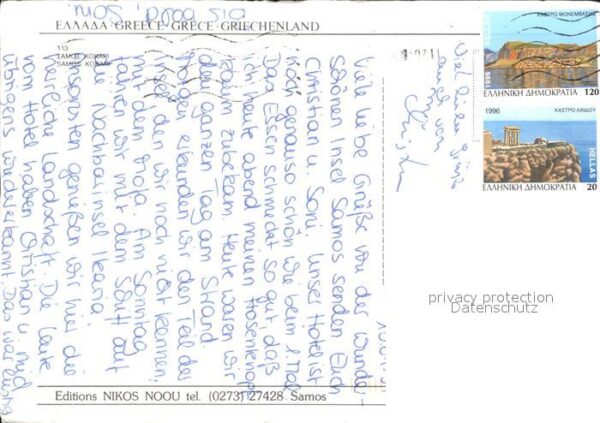 ΕΛΛΑΔΑ · GREECE · GRÈCE · GRIECHENLAND
113
ΣΑΜΟΣ ΚΟΚΑΡΙ
SAMOS KOKARI
ΚΑΣΤΡΟ ΜΟΝΕΜΒΑΣΙΑΣ
ΕΛΛΗΝΙΚΗ ΔΗΜΟΚΡΑΤΙΑ 120
1996 ΚΑΣΤΡΟ ΛΙΝΔΟΥ
HELLAS
ΕΛΛΗΝΙΚΗ ΔΗΜΟΚΡΑΤΙΑ 20
Viele liebe Grüße von der wunder-
schönen Insel Samos senden Euch
Christian u. Soni. Unser Hotel ist
noch genauso schön wie beim 1. Mal.
Das Essen schmeckt so gut, daß
ich heute abend meinen Hosenknopf
kaum zubekam. Heute waren wir
den ganzen Tag am Strand
morgen erkunden wir den Teil der
Insel den wir noch nicht kennen
mit dem Moja. Am Sonntag
fahren wir mit dem Schiff auf
die Nachbarinsel Ikaria.
Ansonsten genießen wir hier die
herrliche Landschaft. Die Leute
vom Hotel haben Christian u. mich
übrigens wiedererkannt. Das war lustig
Bis bald, Soni
Viel liebe Grüße
auch von
Christian
privacy protection
Datenschutz
Editions NIKOS NOOU tel. (0273) 27428 Samos